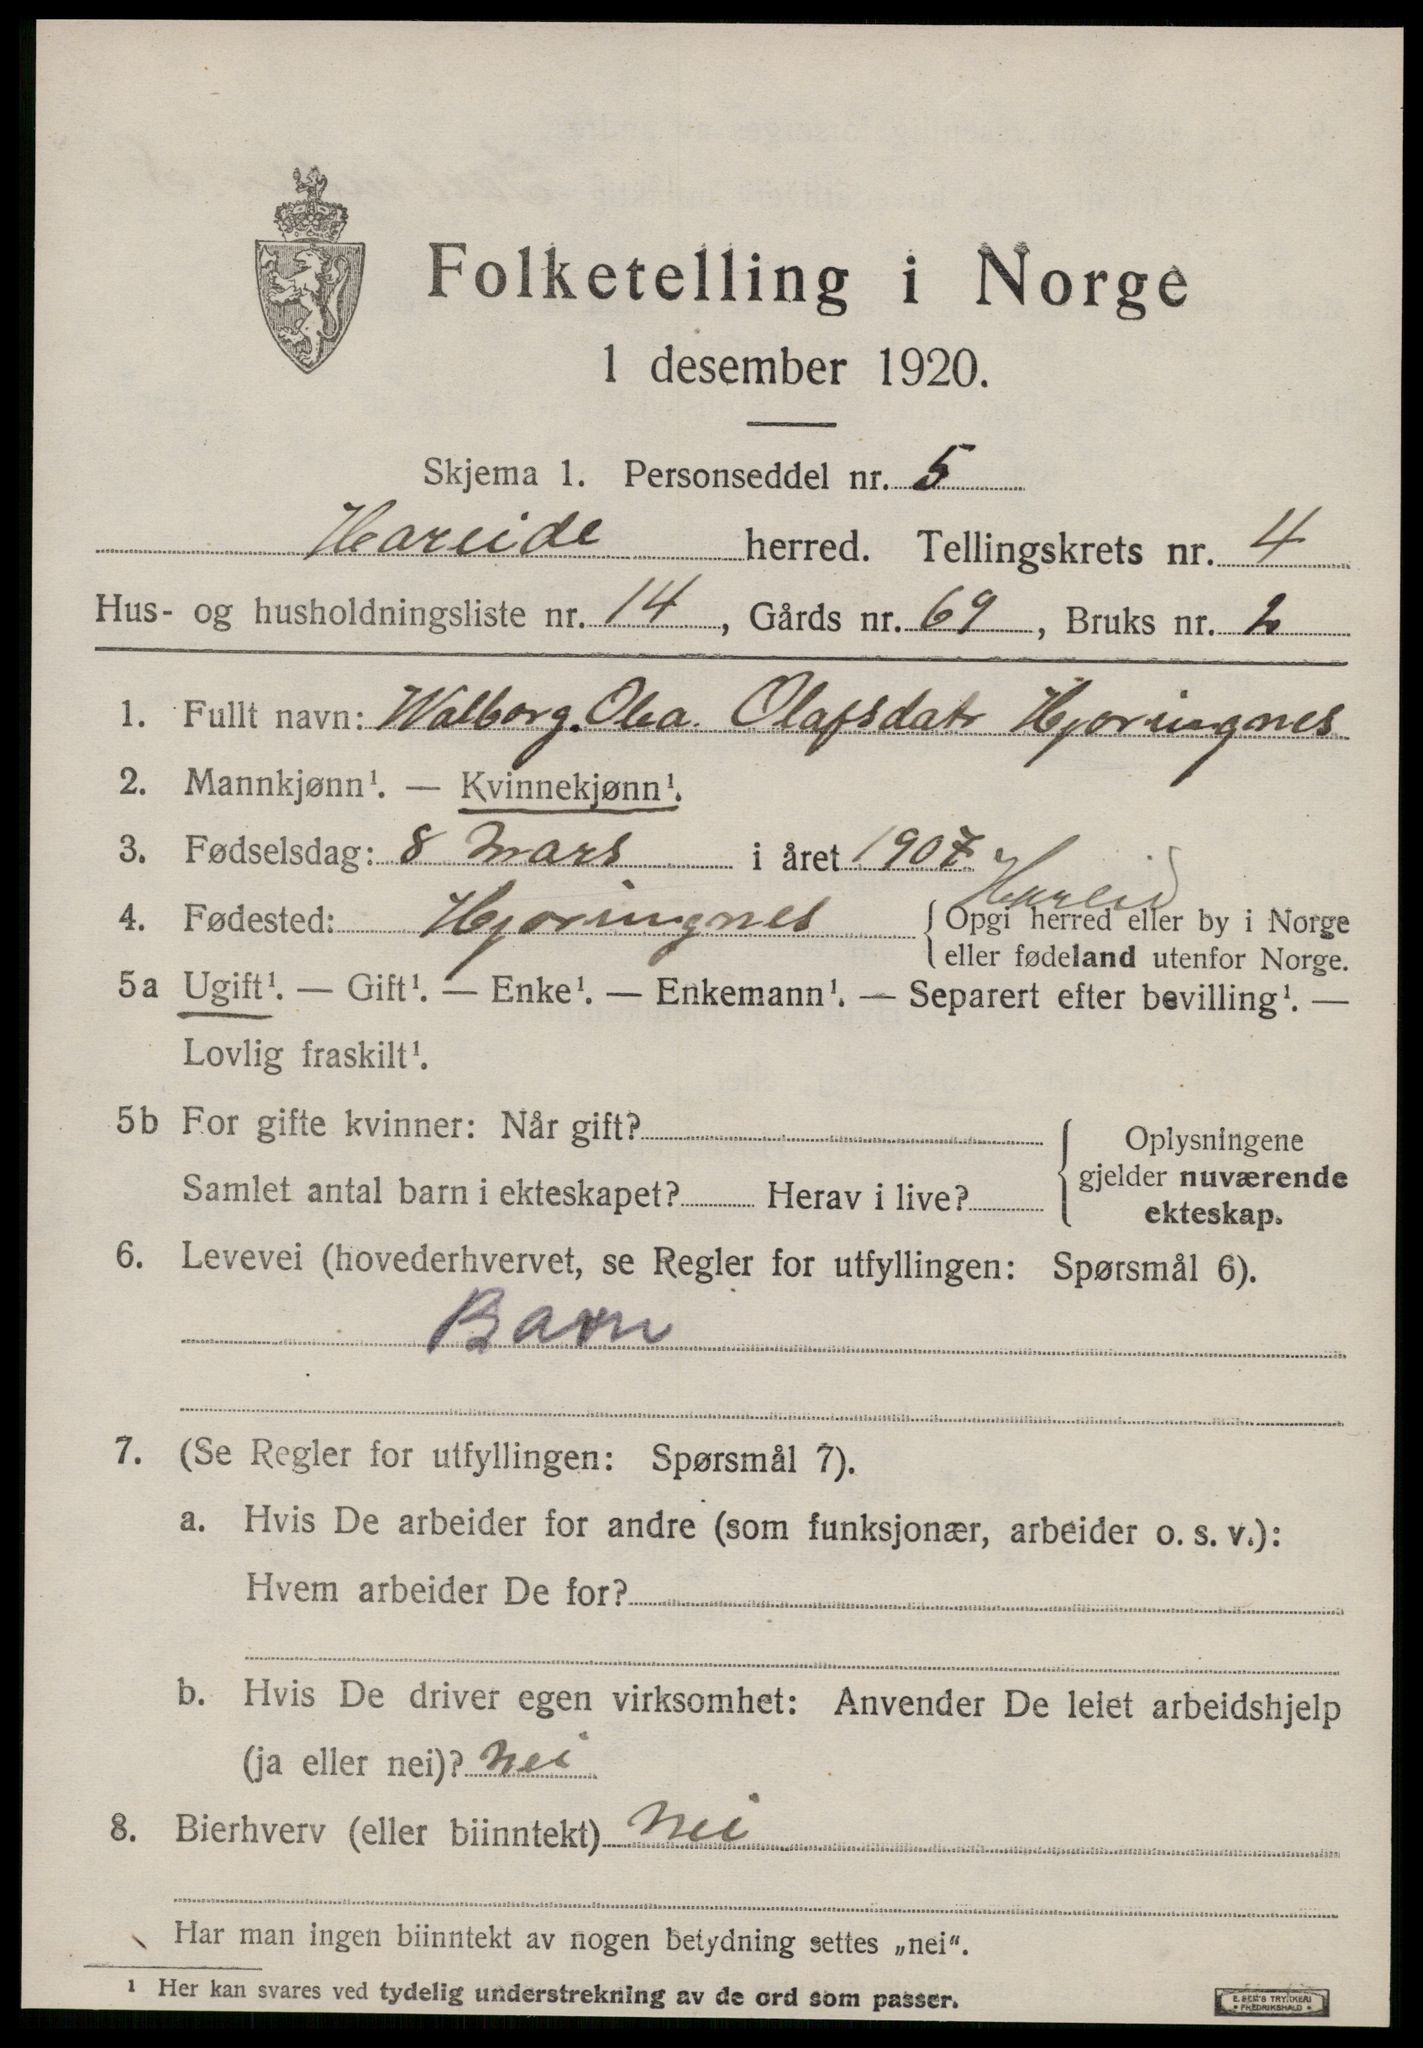 Folketelling i Norge
1 desember 1920.
Skjema 1. Personseddel nr. 5
Hareide herred. Tellingskrets nr. 4
Hus- og husholdningsliste nr. 14, Gårds nr. 69, Bruks nr. 2
1. Fullt navn: Walborg. Olea. Olafsdatr Hjøringnes
2. Mannkjønn¹. — Kvinnekjønn¹.
3. Fødselsdag: 8 mars i året 1907
Hareid
4. Fødested: Hjøringnes { Opgi herred eller by i Norge
eller fødeland utenfor Norge.
5a Ugift¹. — Gift¹. — Enke¹. — Enkemann¹. — Separert efter bevilling¹. —
Lovlig fraskilt¹.
5b For gifte kvinner: Når gift?
Samlet antal barn i ekteskapet? Herav i live?
Oplysningene
gjelder nuværende
ekteskap.
6. Levevei (hovederhvervet, se Regler for utfyllingen: Spørsmål 6).
Barn
7. (Se Regler for utfyllingen: Spørsmål 7).
a. Hvis De arbeider for andre (som funksjonær, arbeider o. s. v.):
Hvem arbeider De for?
b. Hvis De driver egen virksomhet: Anvender De leiet arbeidshjelp
(ja eller nei)? nei
8. Bierhverv (eller biinntekt) nei
Har man ingen biinntekt av nogen betydning settes „nei“.
¹ Her kan svares ved tydelig understrekning av de ord som passer.
E. SEM'S TRYKKERI
• FREDRIKSHALD •